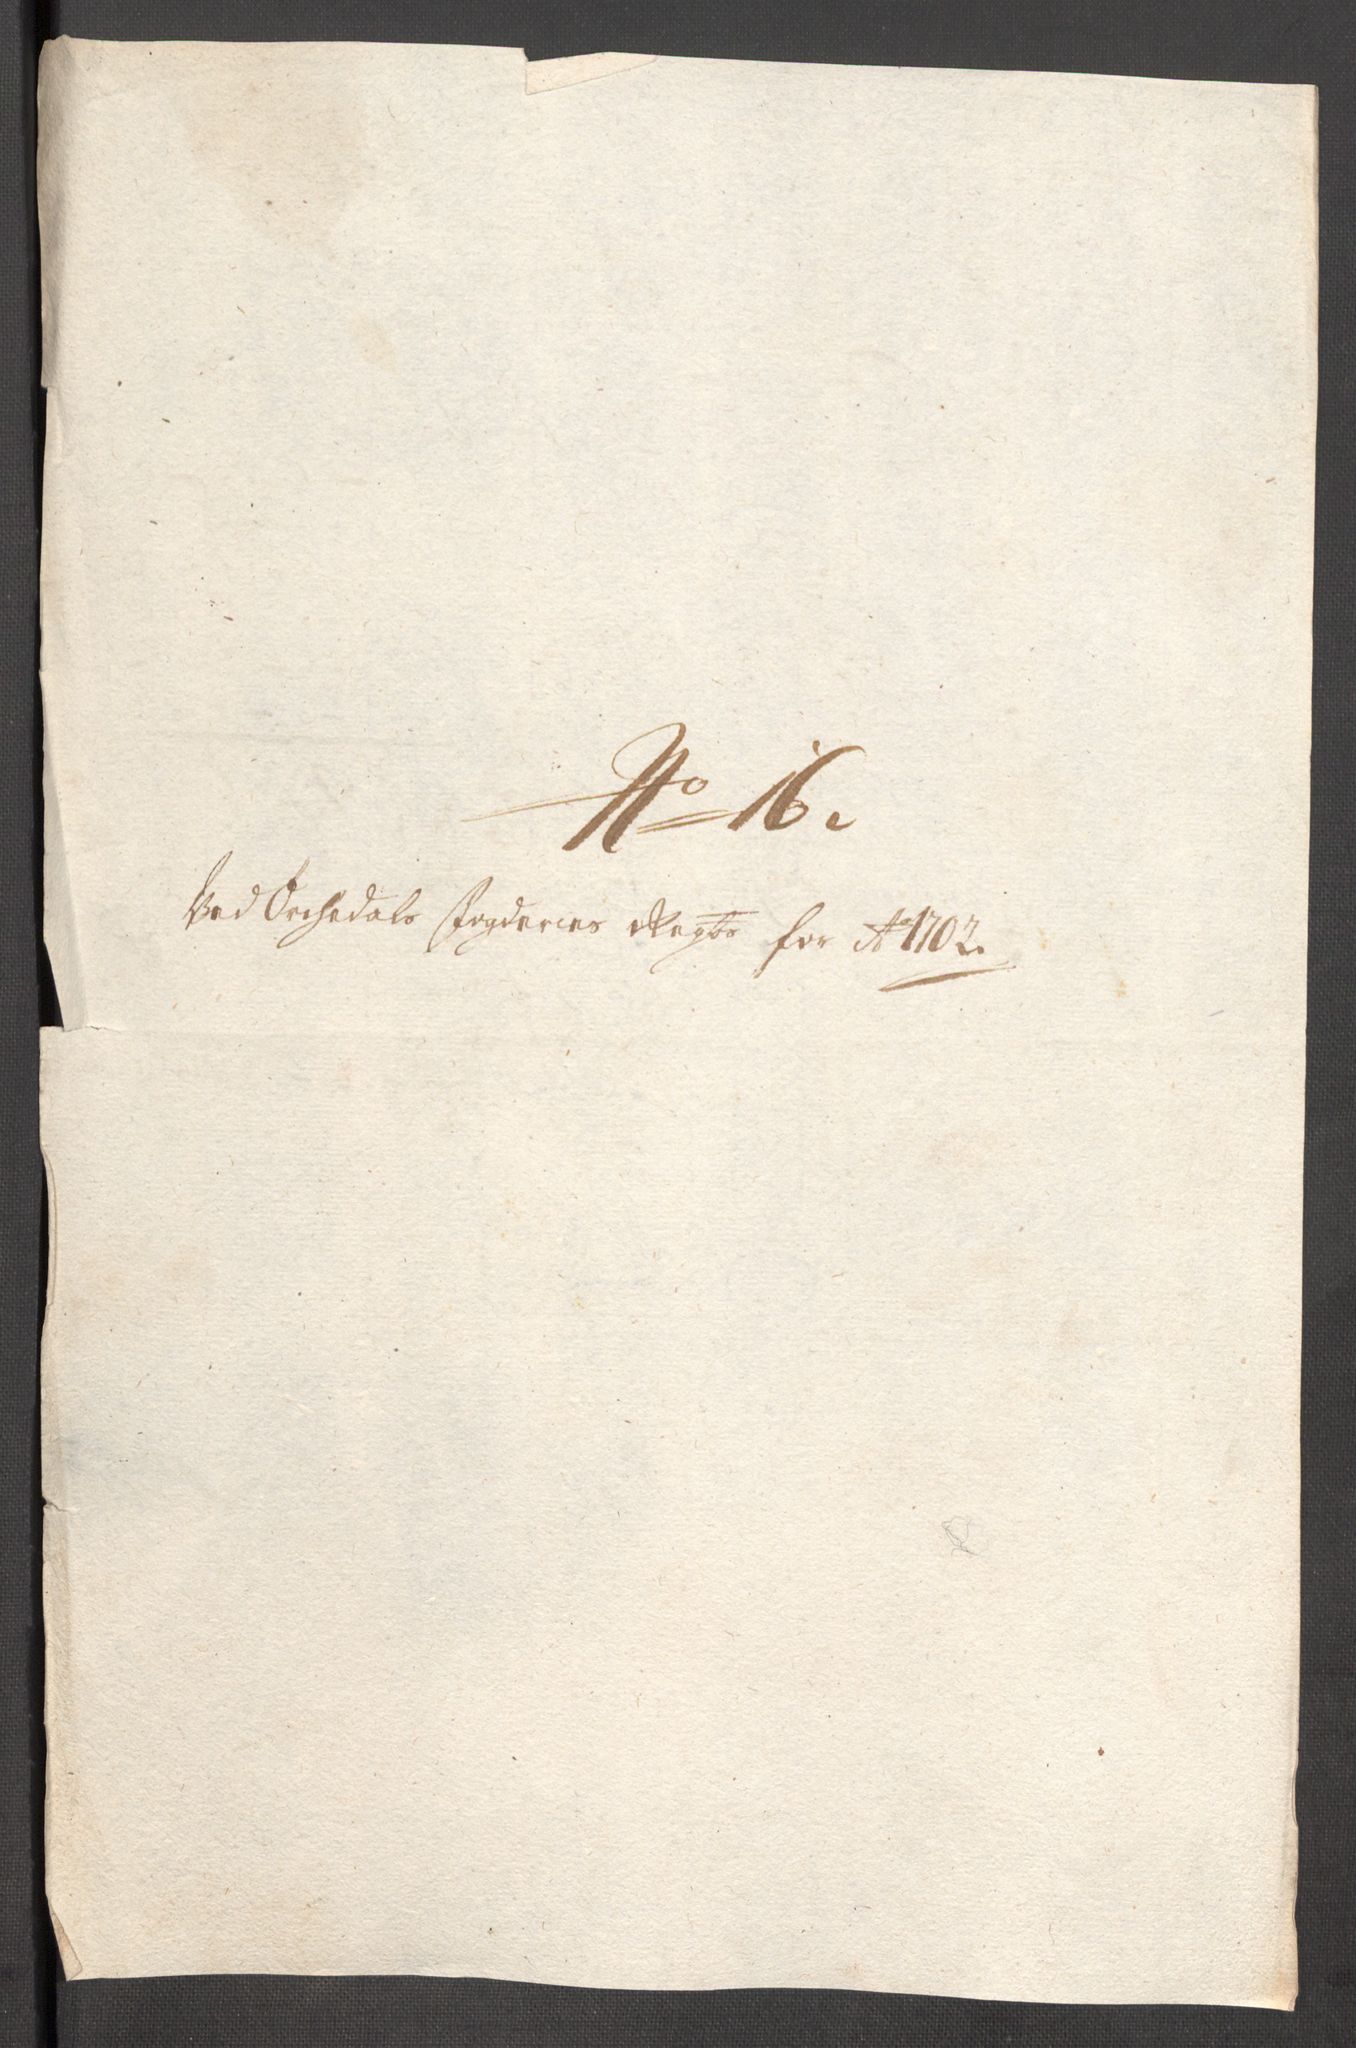 No 16.
Ved Orchedals fogderies Regbs for Ao 1702.